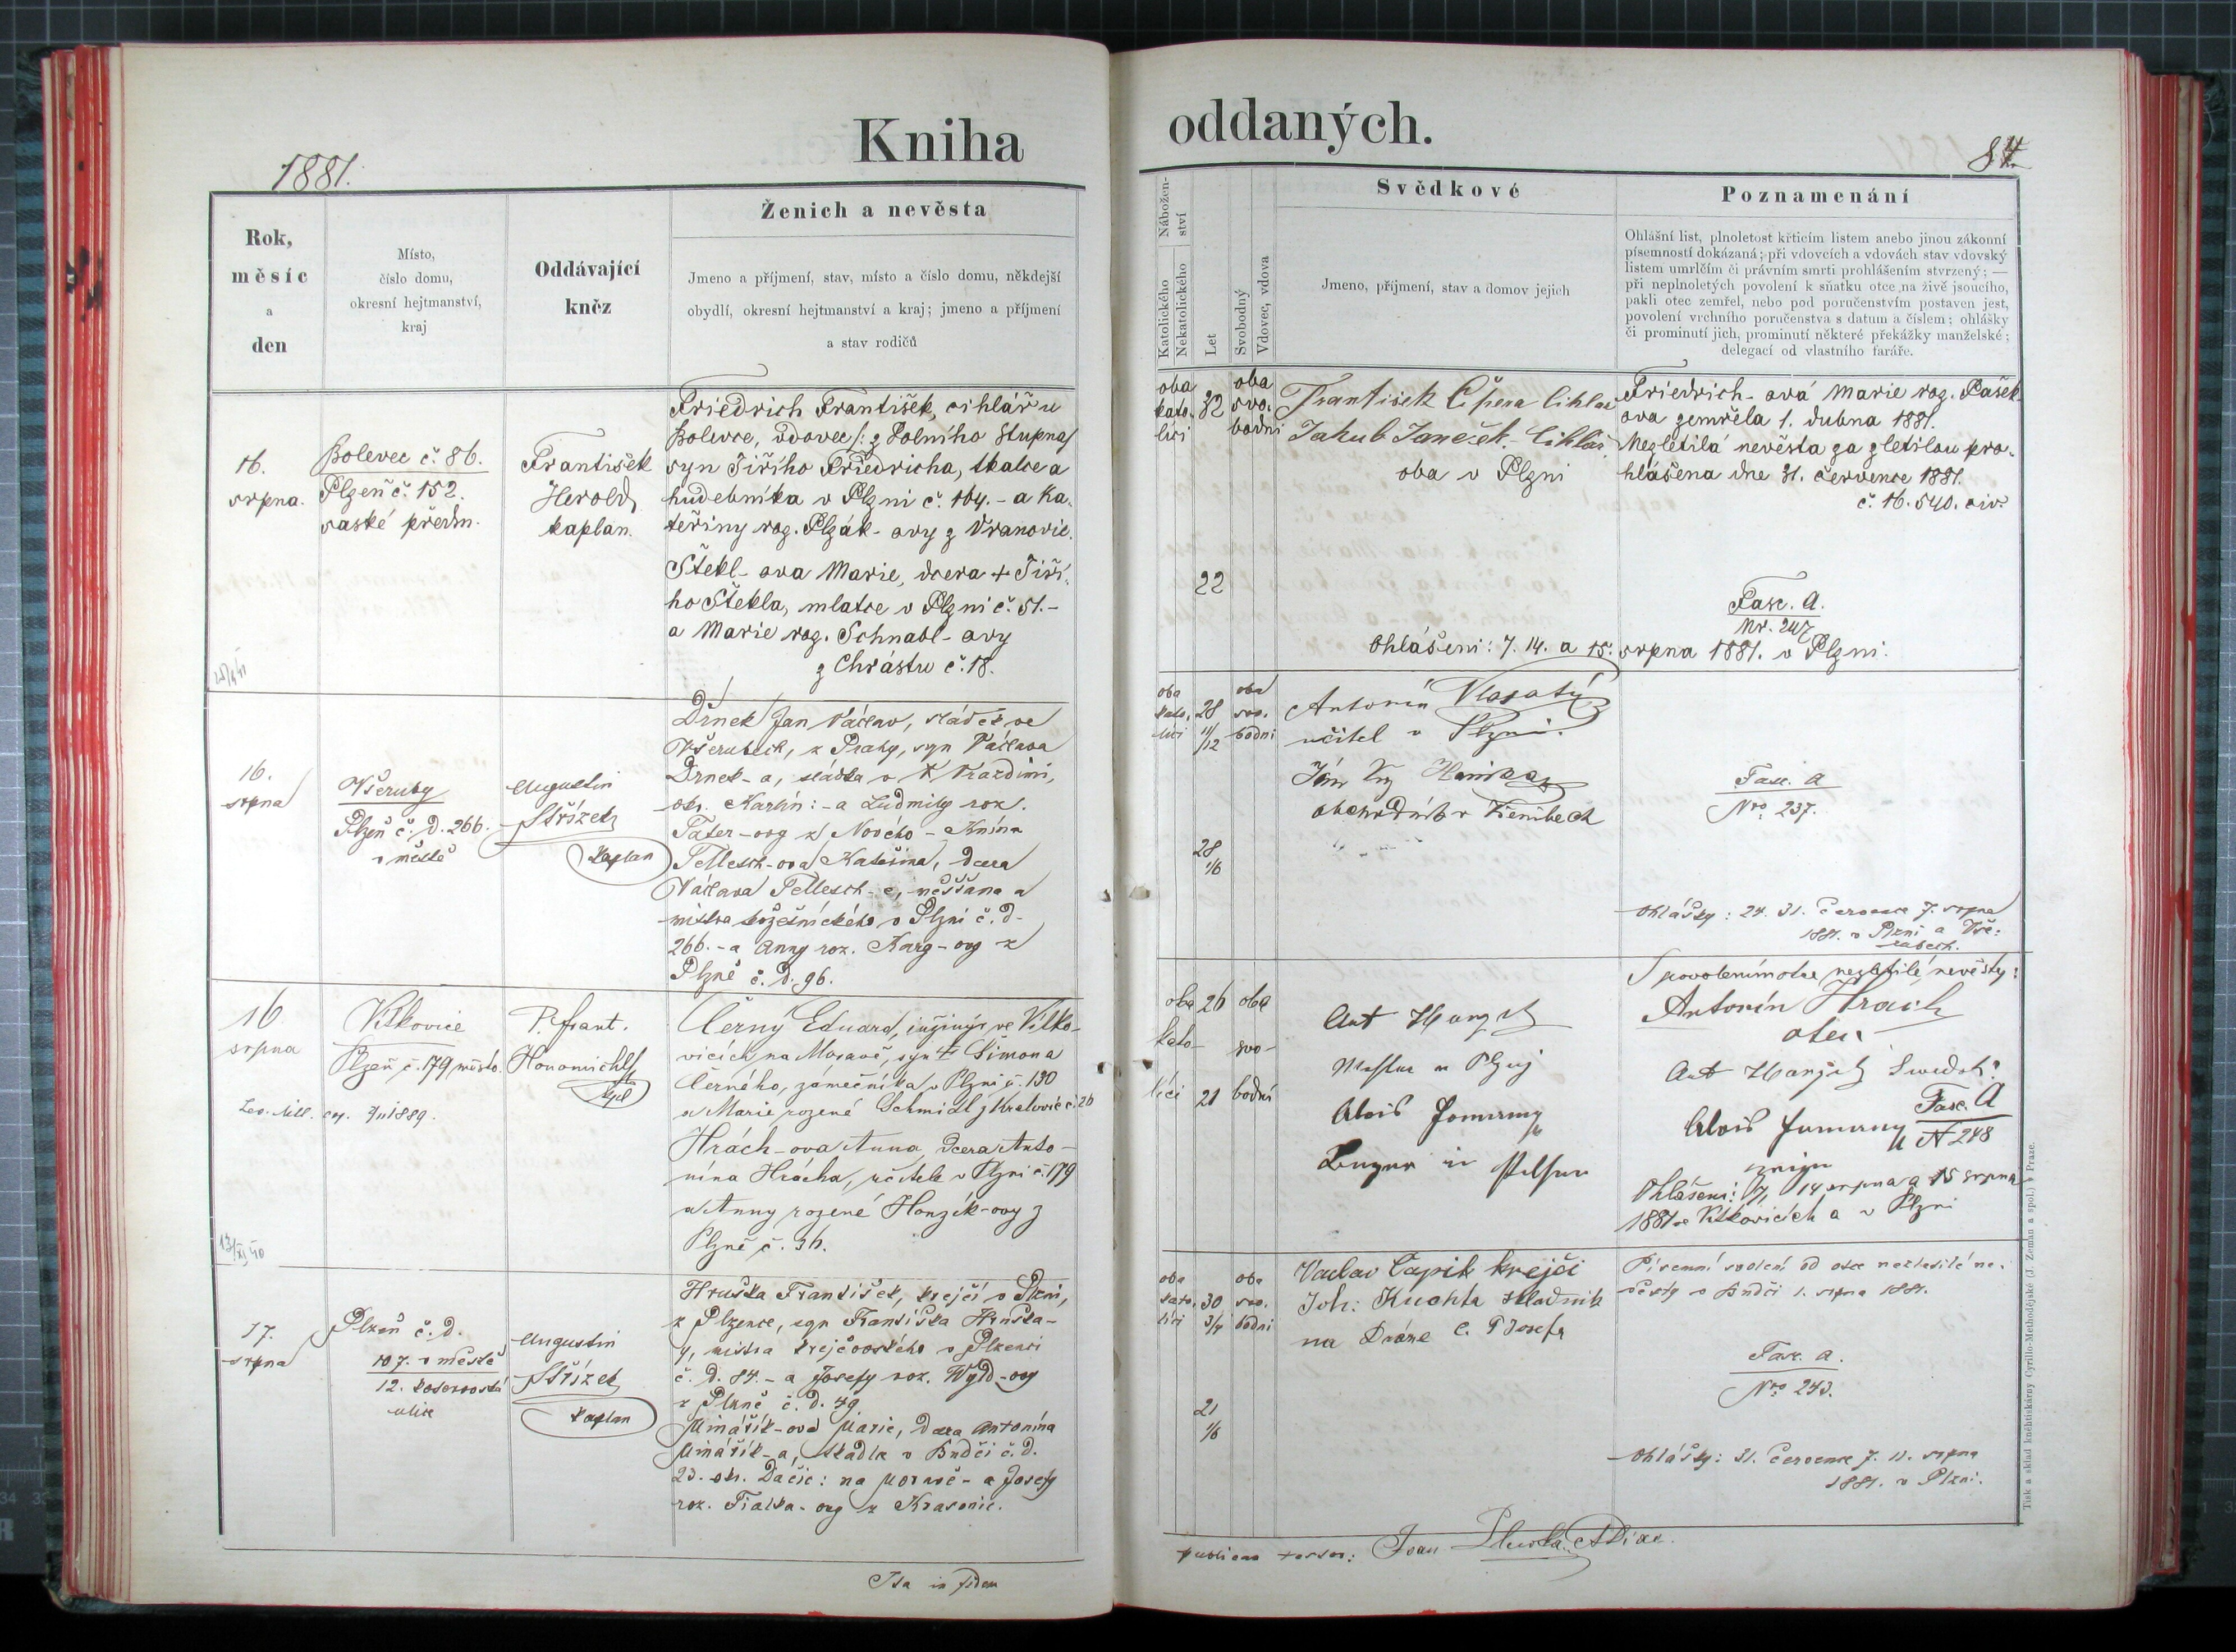 Kniha oddaných.
1881.
84
Rok,
měsíc
a
den
Místo,
číslo domu,
okresní hejtmanství,
kraj
Oddávající
kněz
Ženich a nevěsta
Jmeno a příjmení, stav, místo a číslo domu, někdejší
obydlí, okresní hejtmanství a kraj; jmeno a příjmení
a stav rodičů
Nábožen-
ství
Katolického
Nekatolického
Let
Svobodný
Vdovec, vdova
Svědkové
Jmeno, příjmení, stav a domov jejich
Poznamenání
Ohlášní list, plnoletost křticím listem anebo jinou zákonní
písemností dokázaná; při vdovcích a vdovách stav vdovský
listem umrlčím či právním smrti prohlášením stvrzený; —
při neplnoletých povolení k sňatku otce na živě jsoucího,
pakli otec zemřel, nebo pod poručenstvím postaven jest,
povolení vrchního poručenstva s datum a číslem; ohlášky
či prominutí jich, prominutí některé překážky manželské;
delegací od vlastního faráře.
16.
srpna.
Bolevec č. 86.
Plzeň č. 152.
saské předm.
František
Herold
kaplan.
Friedrich František, cihlář u
Bolevce, vdovec /: z Dolního Stupna/
syn Jiřího Friedricha, tkalce a
hudebníka v Plzni č. 164. - a Ka-
teřiny roz. Plzák-ovy z Vranovic.
Štekl-ova Marie, dcera + Jiří-
ho Štekla, mlatce v Plzni č. 51. -
a Marie roz. Schnabl-ovy
z Chrástu č. 18.
oba
kato.
líci
32
22
oba
svo.
bodni
František Čipera Cihlař
Jakub Janeček - Cihlař,
oba v Plzni
Friedrich-ová Marie roz. Pašek-
ova zemřela 1. dubna 1881.
Nezletilá nevěsta za zletilou pro-
hlášena dne 31. července 1881.
č. 16.540. civ.
Fasc. A.
Nr. 247
Ohlášeni: 7. 14. a 15. srpna 1881. v Plzni.
16.
srpna
Všeruby
Plzeň č. D. 266.
v městě
Augustin
Střízek
kaplan
Drnek Jan Václav, sládek ve
Všerubech, z Prahy, syn Václava
Drnek-a, sládka v
okr. Karlín: - a Ludmily roz.
z Nového - Knína
Tellesch-ova Kateřina, dcera
Václava Tellesch-e, měšťana a
mistra kožešnického v Plzni č. d.
266. - a Anny roz. Karg-ovy z
Plzně č. D. 96.
oba
kato.
líci
28
11/12
28
1/6
oba
svo.
bodni
Antonín Vlasatý
učitel v Plzni.
Fasc. A
Nro 237.
Ohlášky: 24. 31. Července 7. srpna
1881. v Plzni a Vše-
rubech.
16
srpna
Vítkovice
Plzeň č. 179 město.
P. Frant.
Honomichl
kpl
Černý Eduard, inžinýr ve Vítko-
vicích na Moravě, syn + Šimona
Černého, zámečníka v Plzni č. 130
a Marie rozené Schmidt z Kralovic č. 26
Hrách-ova Anna, dcera Anto-
nína Hrácha, učitele v Plzni č. 179
a Anny rozené Honzík-ovy z
Plzně č. 36.
oba
kato-
líci
26
21
oba
svo-
bodni
S povolením otce nezletilé nevěsty:
Antonín Hrach
otec
Fasc. A
N 248
Ohlášeni: 7, 14 srpna a 15 srpna
1881 ve Vítkovicích a v Plzni
17.
srpna
Plzeň č. d.
107. v městě
12.
ulice
Augustin
Střízek
kaplan
Hruška František, krejčí v Plzni,
z Plzence, syn Františka Hruška-
y, mistra krejčovského v Plzenci
č. D. 84. - a Josefy roz. Wild-ovy
z Plzně č. D. 49.
Minářík-ova Marie, dcera Antonína
Minářík-a, tkadlce v Budči č. d.
23. okr. Dačic: na Moravě - a Josefy
roz. Fialka-ovy z Krasonic.
oba
kato.
líci
30
3/4
21
1/6
oba
svo.
bodni
Vaclav Čapik krejčí
Joh: Kuchta skladnik
na Draze C. F Josefa
Písemní svolení od otce nezletilé ne-
věsty v Budči 1. srpna 1881.
Fasc. A.
Nro 243.
Ohlášky: 31. Července 7. 11. srpna
1881. v Plzni.
Ita in fidem
Tisk a sklad knihtiskárny Cyrillo-Methodějské (J. Zeman a spol.) v Praze.